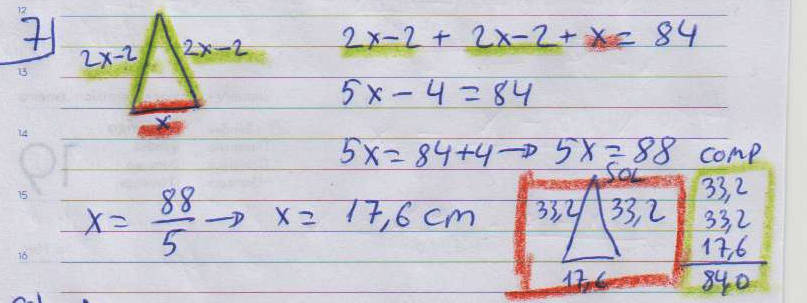 12
7
2x-2 2x-2
x
2x-2 + 2x-2 + x = 84
13
5x - 4 = 84
14
5x = 84+4 → 5x = 88
15
x = 88/5 → x = 17,6 cm
16
SOL
33,2 33,2
17,6
comp
33,2
33,2
17,6
84,0